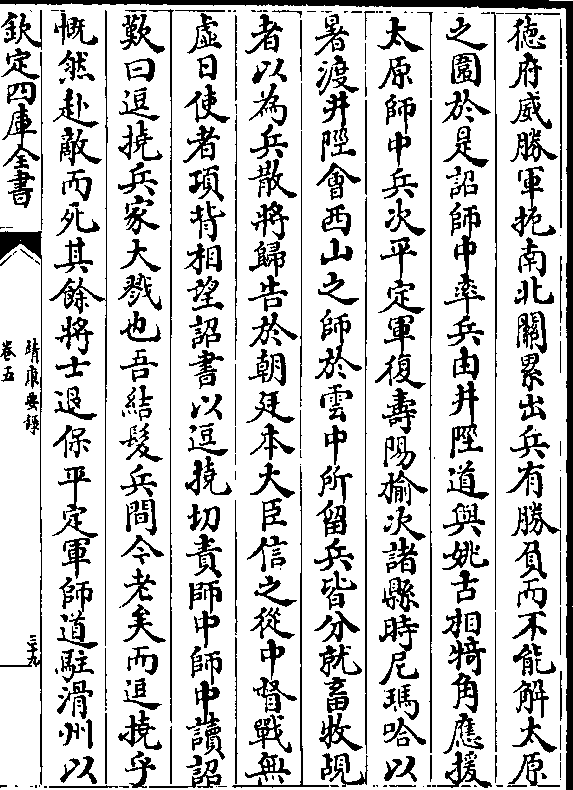 德府威勝軍扼南北關累出兵有勝負而不能解太原
之圍於是詔師中率兵由井陘道與姚古相犄角應援
太原師中兵次平定軍復壽陽榆次諸縣時尼瑪哈以
暑渡井陘會西山之師於雲中所留兵皆分就畜牧覘
者以為兵散將歸告於朝廷本大臣信之從中督戰無
虛日使者項背相望詔書以逗撓切責師中師中讀詔
歎曰逗撓兵家大戮也吾結髮兵間今老矣而逗撓乎
慨然赴敵而死其餘將士退保平定軍師道駐滑州以
欽定四庫全書
靖康要録
卷五
三十九